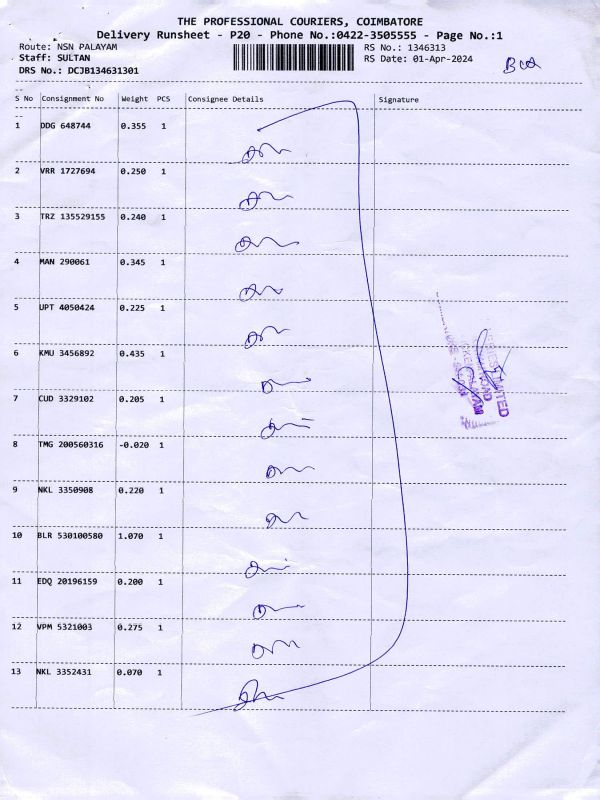 THE PROFESSIONAL COURIERS, COIMBATORE
Delivery Runsheet - P20 - Phone No.:0422-3505555 - Page No.:1
Route: NSN PALAYAM
RS No.: 1346313
Staff: SULTAN
RS Date: 01-Apr-2024
DRS No.: DCJB134631301
S No Consignment No Weight PCS Consignee Details Signature
1 DDG 648744 0.355 1
2 VRR 1727694 0.250 1
3 TRZ 135529155 0.240 1
4 MAN 290061 0.345 1
5 UPT 4050424 0.225 1
6 KMU 3456892 0.435 1
7 CUD 3329102 0.205 1
8 TMG 200560316 -0.020 1
9 NKL 3350908 0.220 1
10 BLR 530100580 1.070 1
11 EDQ 20196159 0.200 1
12 VPM 5321003 0.275 1
13 NKL 3352431 0.070 1